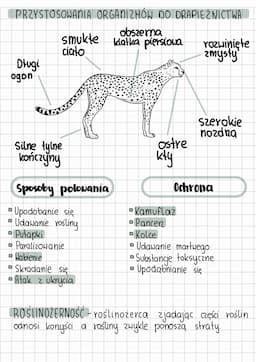 PRZYSTOSOWANIA ORGANIZMÓW DO DRAPIEŻNICTWA
smukłe ciało
obszerna klatka piersiowa
rozwinięte zmysły
Długi ogon
szerokie nozdrza
Silne tylne kończyny
ostre kły
Sposoby polowania
Ochrona
Upodobanie się
Udawanie rośliny
Pułapki
Paraliżowanie
Wabienie
Skradanie się
Atak z ukrycia
Kamuflaż
Pancerz
Kolce
Udawanie martwego
Substancje toksyczne
Upodabnianie się
ROŚLINOŻERNOŚĆ - roślinożerca zjadając części roślin
odnosi korzyści a rośliny zwykle ponoszą straty.